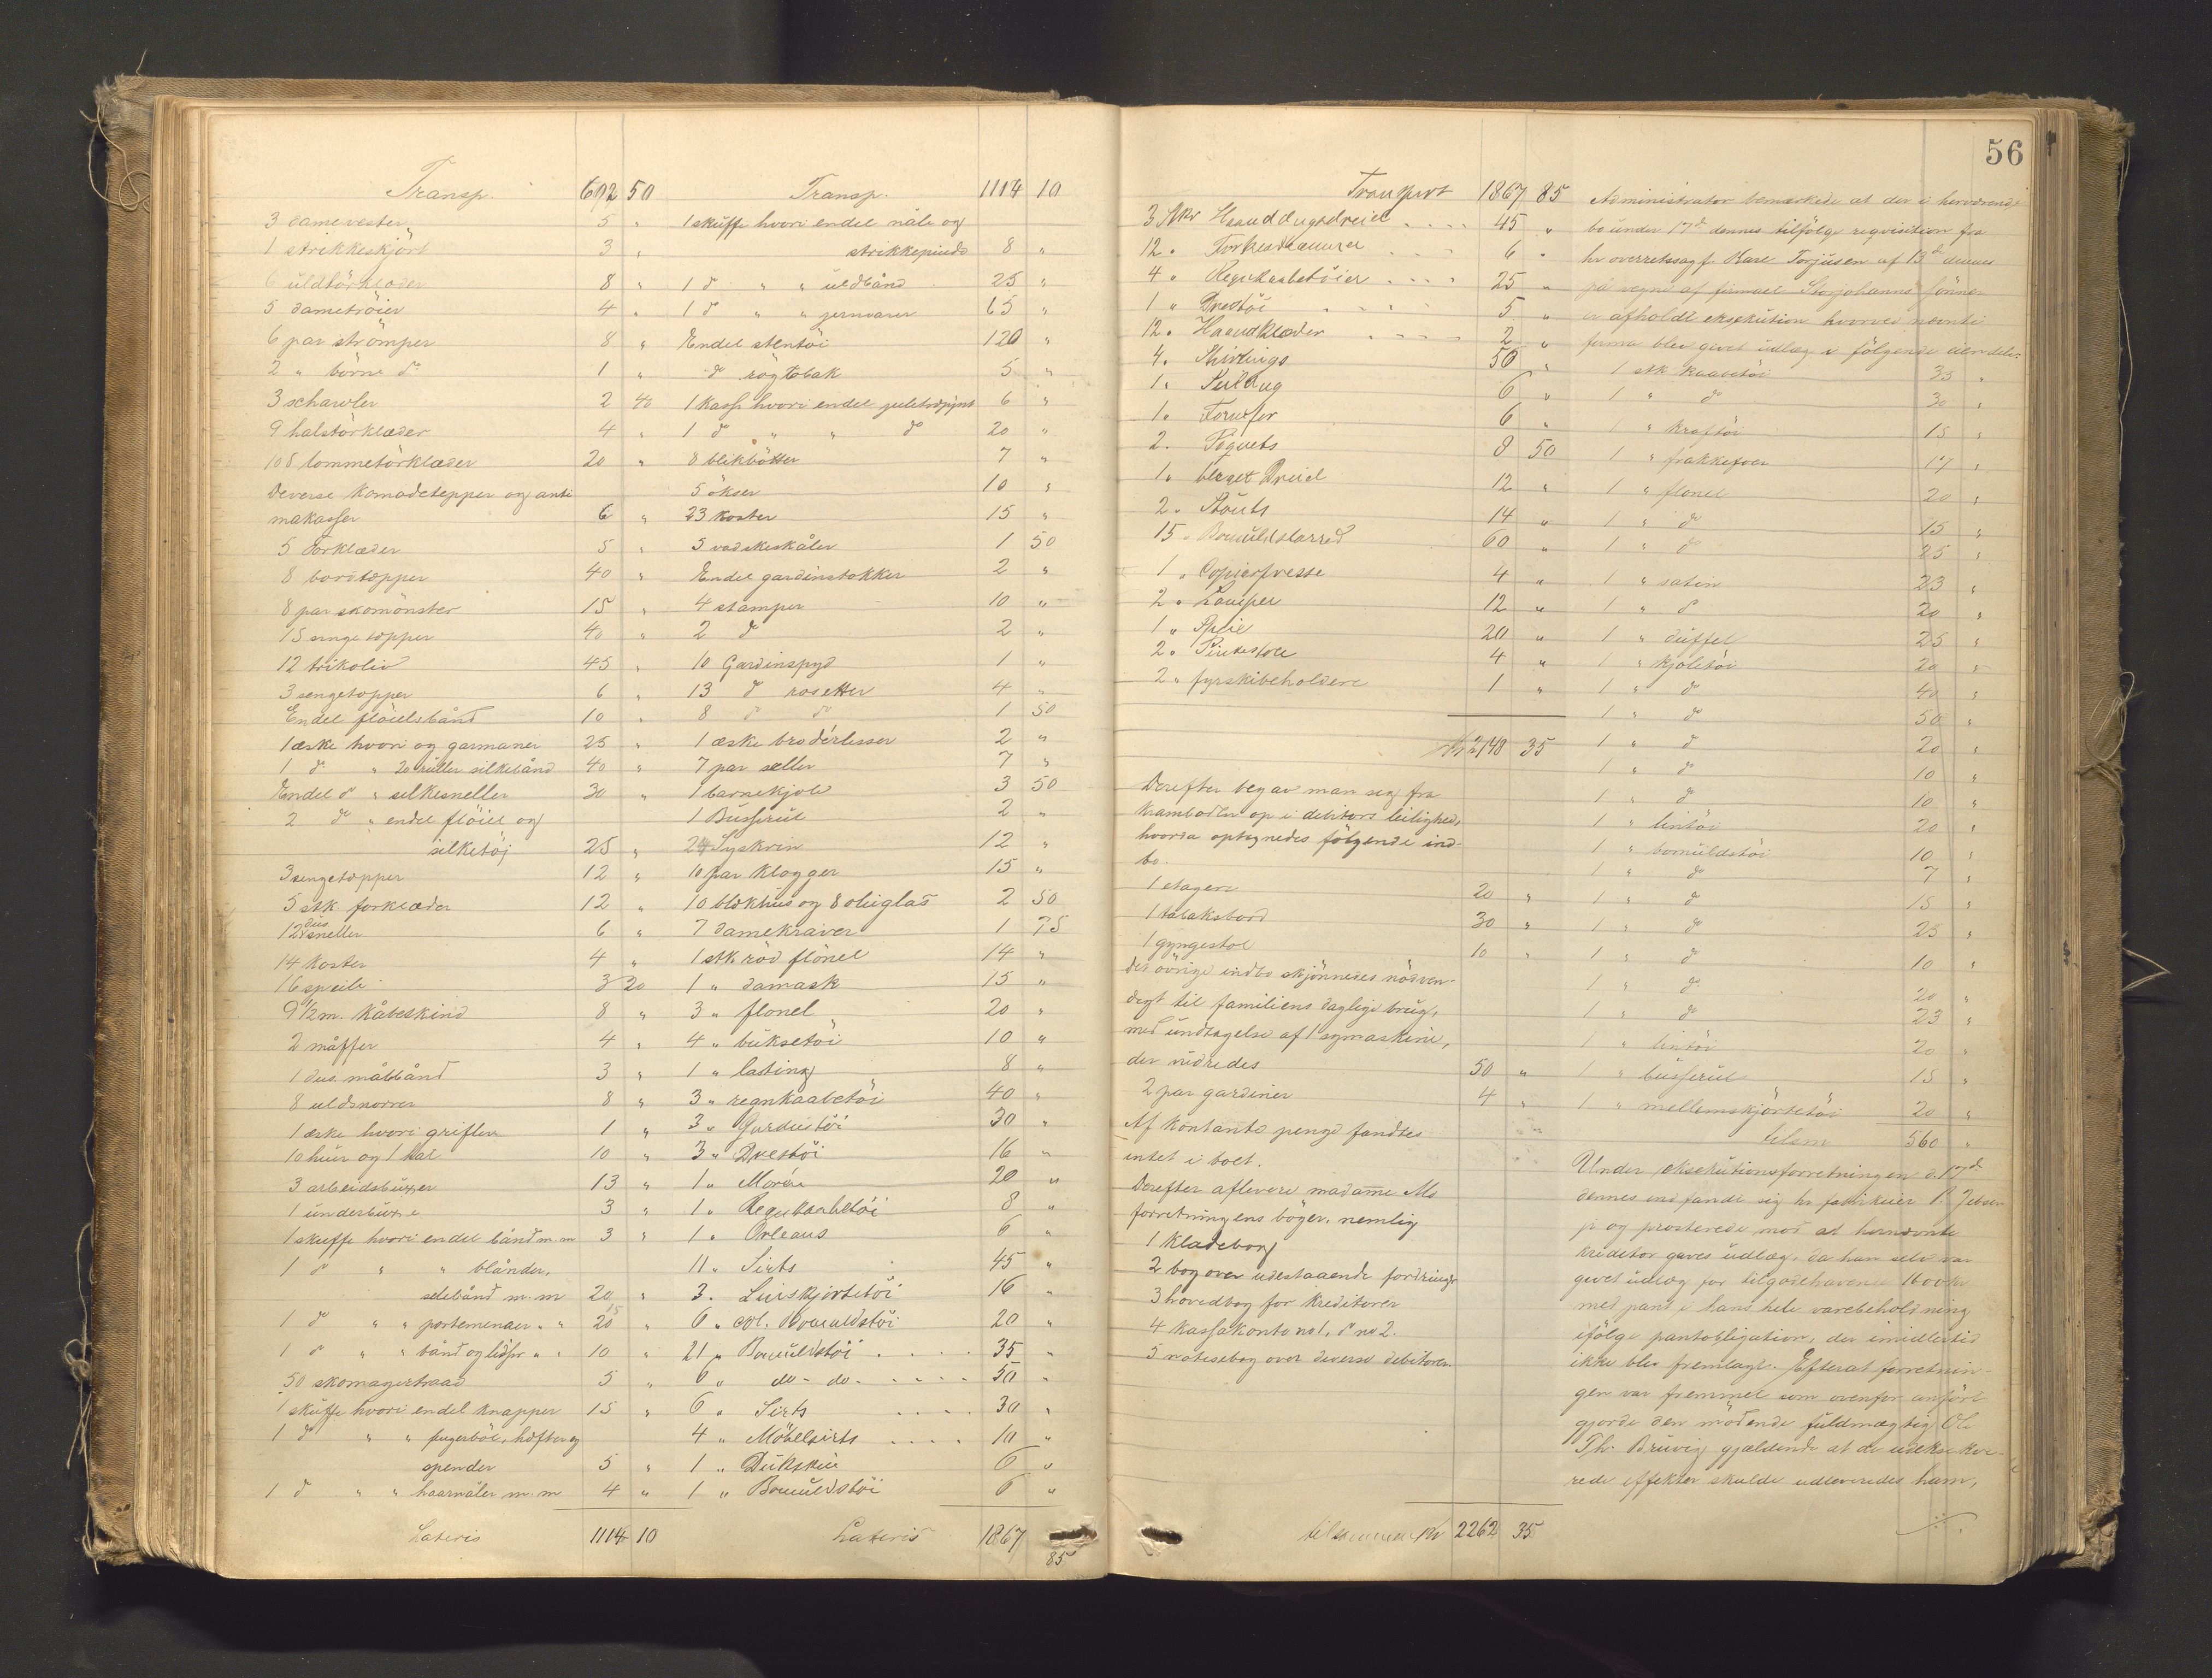 Transp. 692 50
3 damevester 5 "
1 strikkeskjört 3 "
6 uldtörklæder 8 "
5 dametröier 4 "
6 par strömper 8 "
2 " börne do 1 "
3 schawler 2 40
9 halstörklæder 4 "
108 lommetörklæder 20 "
Deverse komodetepper og anti
makasser 6 "
5 Forklæder 5 "
8 bordtæpper 40 "
8 par skomönster 15 "
15 sengetæpper 40 "
12 trikoliv 45 "
3 sengetæpper 6 "
Endel flöielsbånd 10 "
1 æske hvori og garmaner 25 "
1 do " 20 ruller silkebånd 40 "
Endel do " silkesneller 30 "
2 do " endel flöiel og
silketöj 25 "
3 sengetæpper 12 "
5 stk. forklæder 12 "
12 dus. sneller 6 "
14 koster 4 "
16 speile 3 20
9 1/2 m. Kåbeskind 8 "
2 muffer 4 "
1 dus. målbånd 3 "
8 uldsnorer 8 "
1 æske hvori grifler 1 "
10 huer og 1 hat 10 "
3 arbeidsbuxer 13 "
1 underbuxe 3 "
1 skuffe hvori endel bånd m.m 3 "
1 do " " blånder,
selebånd m.m 20 "
1 do " " portemonaer " " 20 "
1 do " " bånd og lidser " " 10 "
50 skomagertraad 5 "
1 skuffe hvori endel knapper 15 "
1 do " " fingerböl, hæfter og
spender 5 "
1 do " " haarnåler m.m 4 "
Lateris 1114 10
Transp. 1114 10
1 skuffe hvori endel nåle og
strikkepinde 8 "
1 do " " uldbånd 25 "
1 do " " jernvarer 65 "
Endel stentöi 120 "
do rögtobak 5 "
1 kasse hvori endel juletræpynt 6 "
1 do " " do 20 "
8 blikbötter 7 "
5 ökser 10 "
23 koster 15 "
5 vadskeskåler 1 50
Endel gardinstokker 2 "
4 stamper 10 "
2 do 2 "
10 Gardinspyd 1 "
13 do rosetter 4 "
8 do do 1 50
1 æske brodérlisser 2 "
7 par sæller 7 "
1 barnekjole 3 50
1 Busserul 2 "
24 Syskrin 12 "
10 par klogger 15 "
10 blækhus og 8 olieglas 2 50
7 damekraver 1 75
1 stk. röd flönel 14 "
1 " damask 15 "
3 " flonel 20 "
4 " buksetöi 10 "
1 " lasting 8 "
3 " regnkaabetöi 40 "
3 " Gardintöi 30 "
3 " Drestöi 16 "
1 " Morén 20 "
1 " Regnkaabetöi 8 "
1 " Orleans 6 "
11 " Sirts 45 "
3 " Linskjortetöi 16 "
6 " Bomuldstöi 20 "
21 " Bomuldstöi 35 "
6 " do - do 50 "
6 " Sirts 30 "
4 " Möbelsirts 10 "
1 " Dukskin 6 "
1 " Bomuldstöi 6 "
Lateris 1867 85
56
Transport 1867 85
3 Stkr Haanddugsdreiel 45 "
12 " 6 "
4 " Regnkaabetöier 25 "
1 " Drestöi 5 "
12 " Haandklæder 2 "
4 " Shirtings 50 "
1 " 6 "
1 " 6 "
2 " 8 50
1 " bleget Dreiel 12 "
2 " Stouts 14 "
15 " Bomuldstörred 60 "
1 " Copierpresse 4 "
2 " Lamper 12 "
1 " Speil 20 "
2 " Pindestole 4 "
2 " fyrstikbeholdere 1 "
Kr 2148 35
Derefter begav man sig fra
kramboden op i debitors leilighed,
hvorda optegnedes fölgende ind-
bo.
1 etagere 20 "
1 tobaksbord 30 "
1 gyngestol 10 "
det övrige indbo skjönnedes nödven-
digt til familiens daglige brug,
med undtagelse af 1 symaskine,
der vurdredes 50 "
2 par gardiner 4 "
Af kontante penge fandtes
intet i boet.
Derefter aflevere madame Mo
forretningens böger, nemlig
1 kladebog
2 bog over udestaaende fordringer
3 hovedbog for kreditorer
4 kassakonto no 1, do no 2.
5 notisebog over diverse debitorer.
tilsammen Kr 2262 35
Administrator bemærkede at der i herværende
bo under 17de dennes tilfölge reqvisition fra
hr overretssagf. Kare Torjusen af 13de dennes
på vegne af firmaet Storjohanns sönner
er afholdt eksekution hvorved nævnte
firma blev givet udlæg i fölgende eiendele:
1 stk kaabetöi 35 "
1 " do 30 "
1 " kraftöi 15 "
1 " frakkefoer 17 "
1 " flonel 20 "
1 " do 15 "
1 " do 25 "
1 " satin 23 "
1 " do 20 "
1 " duffel 25 "
1 " kjoletöi 20 "
1 " do 40 "
1 " do 50 "
1 " do 20 "
1 " do 10 "
1 " do 10 "
1 " lintöi 20 "
1 " bomuldstöi 10 "
1 " do 7 "
1 " do 15 "
1 " do 25 "
1 " do 10 "
1 " do 20 "
1 " do 23 "
1 " lintöi 20 "
1 " busserul 15 "
1 " mellemskjörtetöi 20 "
tilsm 560 "
Under eksekutionsforretningen d. 17de
dennes indfandt sig hr fabrikeier P. Jebsen
jr og prosterede mod at hernævnte
kreditor gaves udlæg, da han selv var
givet udlæg for tilgodehavende 1600 kr
med pant i hans hele varebeholdning
ifölge pantobligation, der imidlertid
ikke blev fremlagt. Efterat forretnin-
gen var fremmet som ovenfor anfört
gjorde den mödende fuldmægtig Ole
Th. Bruvig gjældende at de udekskve-
rede effekter skulde udleveredes ham,
./.